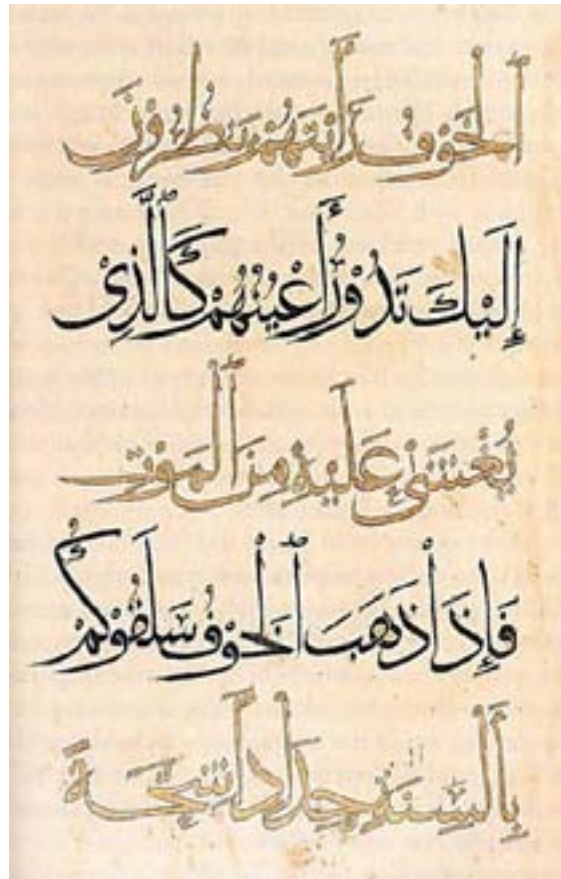 ٱلْخَوْفُ رَأَيْتَهُمْ يَنْظُرُونَ
إِلَيْكَ تَدُوْرُ أَعْيُنُهُمْ كَٱلَّذِيْ
يُغْشَىٰ عَلَيْهِ مِنَ ٱلْمَوْتِ
فَإِذَا ذَهَبَ ٱلْخَوْفُ سَلَقُوْكُمْ
بِأَلْسِنَةٍ حِدَادٍ أَشِحَّةً